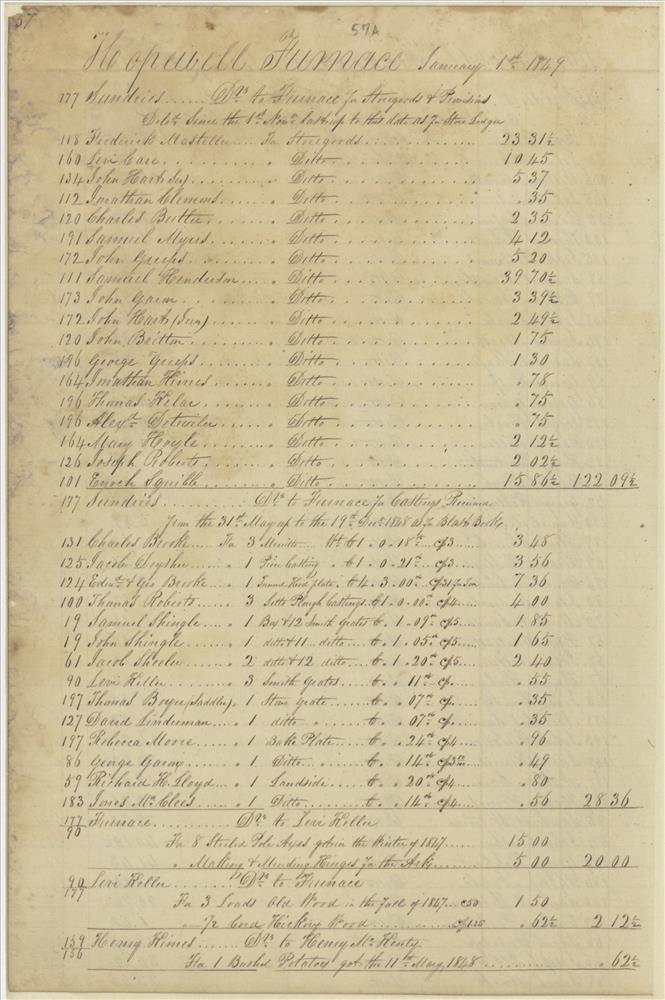 57
57A
62
Hopewell Furnace January 1st 1849
177 Sundries ...... Drs to Furnace for Storegoods & Provisions
Debts Since the 1st Novr last up to this date as per Store Ledger
118 Frederick Mosteller .... For Storegoods ............ 23 31½
160 Levi Care ........ " Ditto ............ 10 45
134 John Hart (Jr) ........ " Ditto ............ 5 37
112 Jonathan Clemens ...... " Ditto ............ " 35
120 Charles Butler ........ " Ditto ............ 2 35
191 Samuel Myers ........ " Ditto ............ 4 12
172 John Greeps ........ " Ditto ............ 5 20
111 Samuel Henderson .... " Ditto ............ 39 70½
173 John ........ " Ditto ............ 3 39½
172 John Hart (Sen) ........ " Ditto ............ 2 49½
120 John Britton ........ " Ditto ............ 1 75
196 George Greeps ........ " Ditto ............ 1 30
164 Jonathan Himes ...... " Ditto ............ " 78
196 Thomas Kilar ........ " Ditto ............ " 75
196 Alexr Detwiler ...... " Ditto ............ " 75
164 Mary Hoyle ........ " Ditto ............ 2 12½
126 Joseph Roberts ...... " Ditto ............ 2 02½
101 Enoch Squibb ...... " Ditto ............ 15 86½ 122 09½
177 Sundries ........ Drs to Furnace for Castings Received
from the 31st May up to the 19th Decr 1848 as per Blast Book
131 Charles Brooke .... For 3 Wt C 1 " 0 " 18 lb c/3 .... 3 48
125 Jacob .... " 1 Casting " C 1 " 0 " 21 lb c/3 .... 3 56
124 Edwd & Geo Brooke .... " 1 Plate .. C 4 " 3 " 00 lb 7 36
100 Thomas Roberts ...... " 3 Setts Plough Castings C 1 " 0 " 00 lb c/4 .... 4 00
19 Samuel Shingle .... " 1 Box & 12 Smith Grates C 1 " 09 lb c/5 .... 1 85
19 John Shingle ...... " 1 ditto & 11 .. ditto .... C 1 " 05 lb c/5 .... 1 65
61 Jacob Sheeler ...... " 2 ditto & 12 ditto .... C 1 " 20 lb c/5 .... 2 40
90 Levi Heller ........ " 3 Smith Grates ...... C " 11 lb c/5 .... " 55
197 Thomas Boyer (Saddler) .. " 1 Stove grate ...... C " 07 lb c/5 .... " 35
127 David Linderman .... " 1 ditto " ...... C " 07 lb c/5 .... " 35
197 Rebecca Moore ...... " 1 Bake Plate .... C " 24 lb c/4 .... " 96
86 George ...... " 1 Ditto .... " C " 14 lb .... " 49
59 Richard H. Lloyd .... " 1 Landside .... C " 20 lb c/4 .... " 80
183 Jones McClees .... " 1 Ditto ...... C " 14 lb c/4 .... " 56 28 36
177/90 Furnace ........ Dr to Levi Heller
For 8 Steeled Pole Axes got in the Winter of 1847 ...... 15 00
" Making & Mending Hinges for the ...... 5 00 20 00
90/177 Levi Heller ........ Dr to Furnace
For 3 Loads Old Wood in the fall of 1847 .. c50 1 50
" ½ Cord Hickory Wood ............ c/125 " 62½ 2 12½
159/156 Henry Himes ...... Dr to Henry McKenty
For 1 Bushel Potatoes got the 11th May, 1848 ............ " 62½